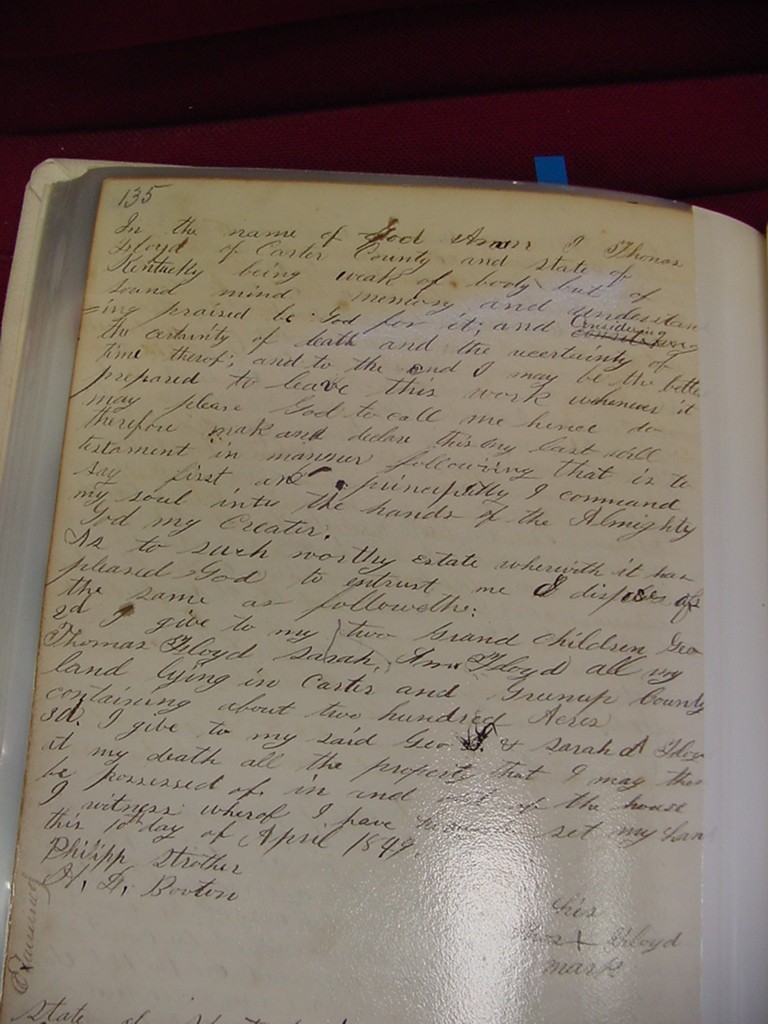 135
In the name of God Amen I Thomas
Floyd of Carter County and State of
Kentucky being weak of body but of
sound mind memory and understan
=ing praised be God for it; and Considering
the certinity of death and the uncertinity of
time therof; and to the end I may be the better
prepared to leave this work whenever it
may please God to call me hence do
therefore mak and declare this my last will
testament in manner following that is to
say first and principlly I command
my soul into the hands of the Almighty
God my Creater.
As to such worthy estate wherwith it has
pleased God to entrust me I disposes of
the same as followethe:
2d I give to my two Grand Children Geo
Thomas Floyd Sarah Ann Floyd all my
land lying in Carter and Greenup County
containing about two hundred Acres
3d. I give to my said Geo & Sarah A Floy
at my death all the property that I may then
be possessed of in and out of the house
I witness wherof I have set my han
this 10th day of April 1849.
Philipp Strother
H. H. Booton
his
Thos X Floyd
mark
Examined
State of